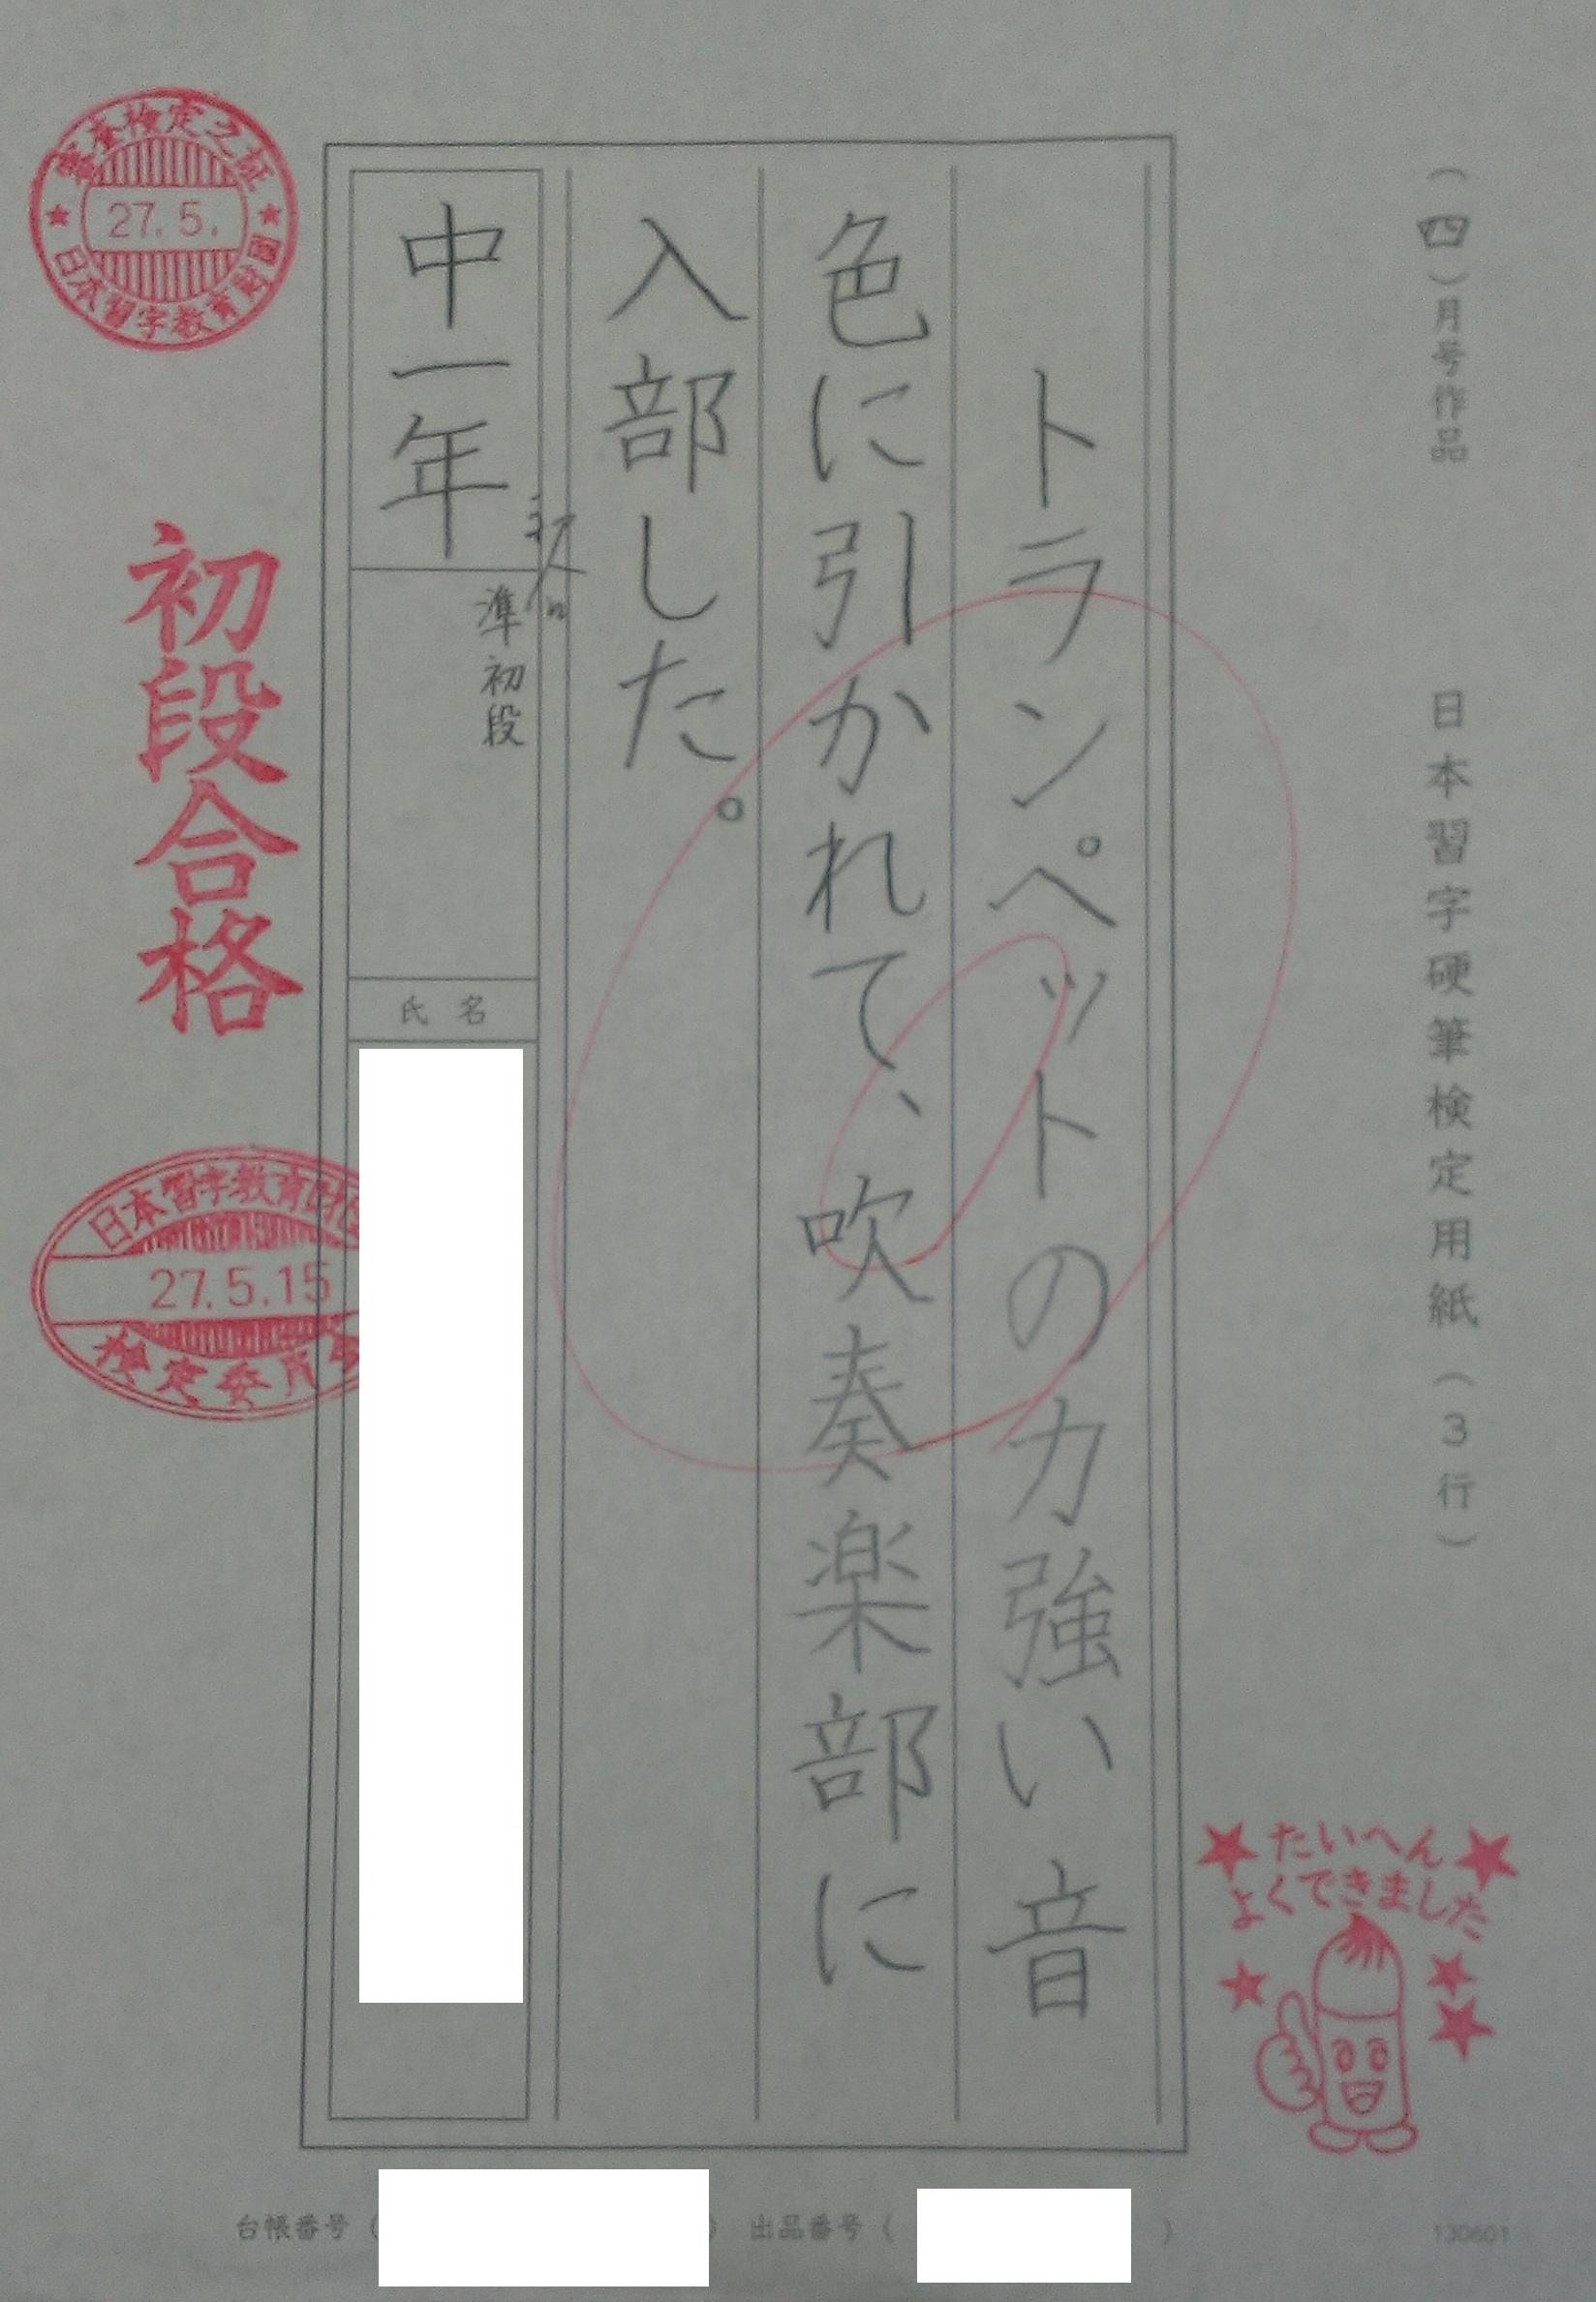 (四)月号作品
日本習字硬筆検定用紙(3行)
トランペットの力強い音
色に引かれて、吹奏楽部に
入部した。
中一年
準初段
氏名
審査検定之証
27.5.
日本習字教育財團
初段合格
日本習字教育財
27.5.15
たいへん
よくできました
台帳番号(
)
出品番号(
)
130601